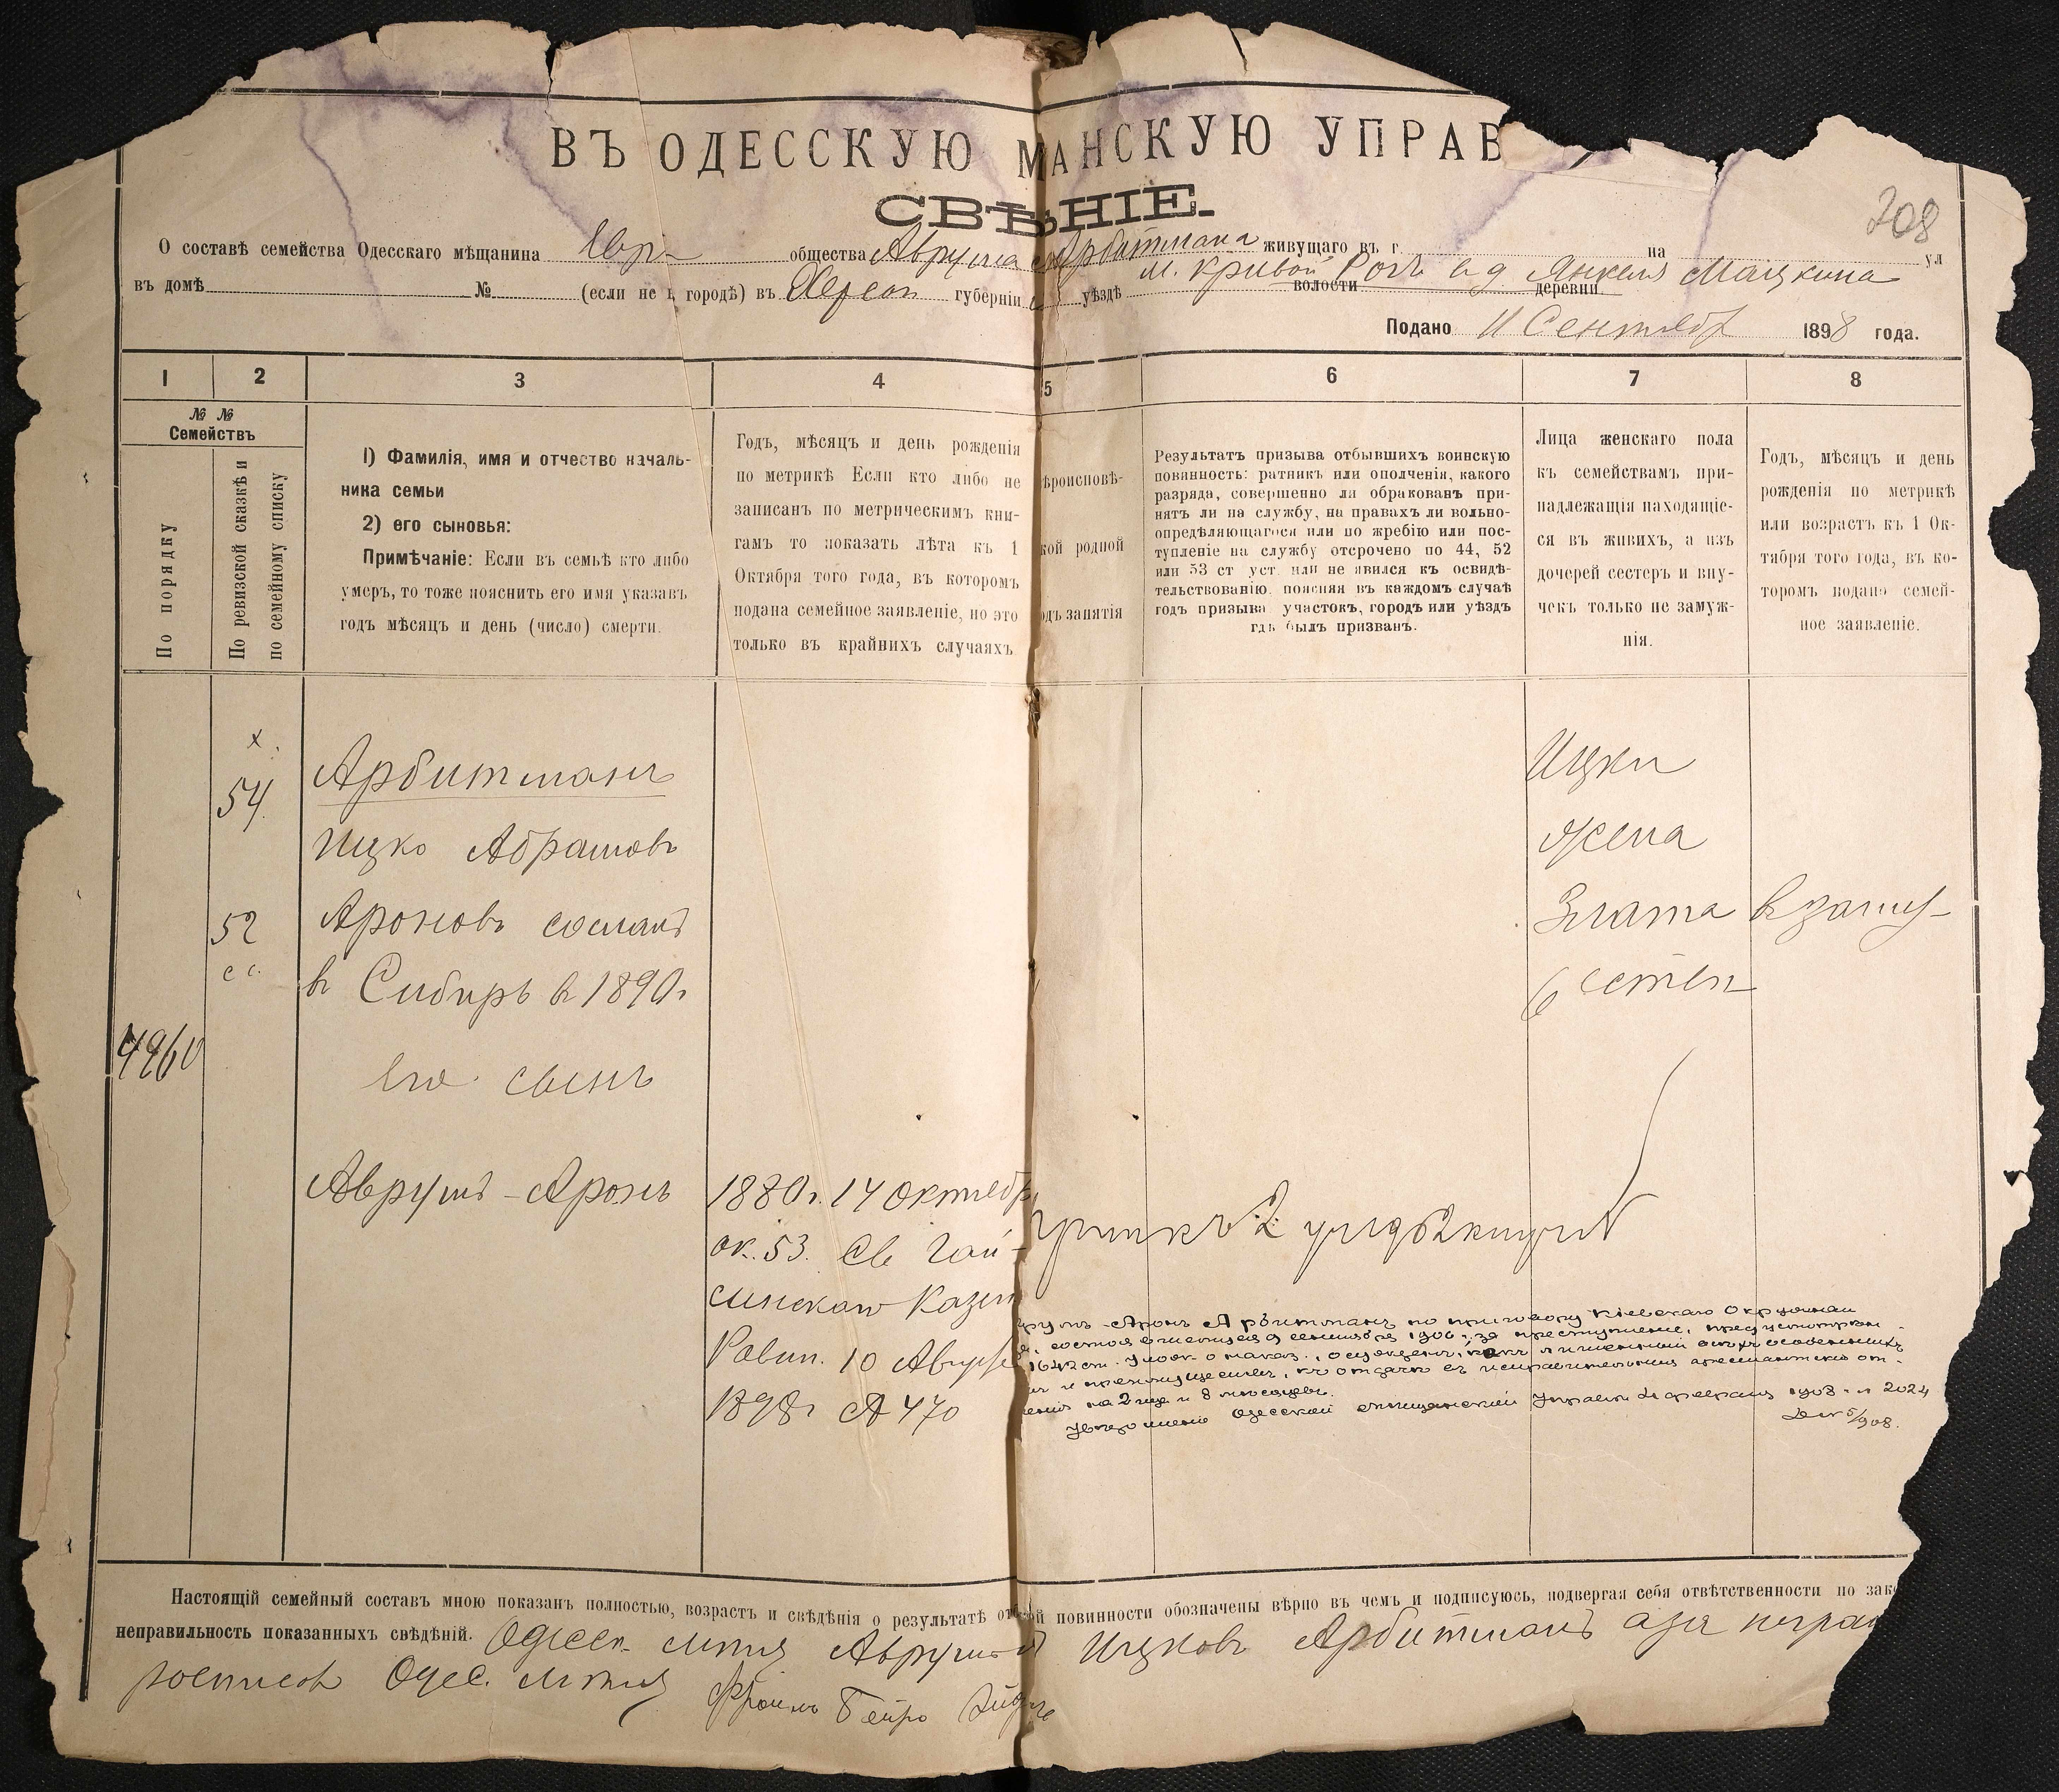 ВЪ ОДЕССКУЮ М АНСКУЮ УПРАВ
СВѢ НІЕ.
208
О составѣ семейства Одесскаго мѣщанина Евр. общества Аврума Арбитмана живущаго въ г на ул
въ домѣ № (если не въ городѣ) въ Херсон губерніи уѣздѣ м. Кривой Рогъ волости в д Янкеля Мацкина деревни
Подано 11 Сентябр 1898 года.
1 2 3 4 5 6 7 8
№ №
Семействъ
По порядку
По ревизской сказкѣ и
по семейному списку
1) Фамилія, имя и отчество началь-
ника семьи
2) его сыновья:
Примѣчаніе: Если въ семьѣ кто либо
умеръ, то тоже пояснить его имя указавъ
годъ мѣсяцъ и день (число) смерти.
Годъ, мѣсяцъ и день рожденія
по метрикѣ Если кто либо не
записанъ по метрическимъ кни-
гамъ то показать лѣта къ 1
Октября того года, въ которомъ
подана семейное заявленіе, но это
только въ крайнихъ случаяхъ
ѣроисповѣ-
кой родной
одъ занятія
Результатъ призыва отбывшихъ воинскую
повинность: ратникъ или ополченія, какого
разряда, совершенно ли обракованъ при-
нятъ ли на службу, на правахъ ли вольно-
опредѣляющагося или по жребію или пос-
тупленіе на службу отсрочено по 44, 52
или 53 ст уст. или не явился къ освидѣ-
тельствованію. поясняя въ каждомъ случаѣ
годъ призыва участокъ, городъ или уѣздъ
гдѣ былъ призванъ.
Лица женскаго пола
къ семействамъ при-
надлежащія находящіе-
ся въ живихъ, а изъ
дочерей сестеръ и вну-
чекъ только не замуж-
нія.
Годъ, мѣсяцъ и день
рожденія по метрикѣ
или возрастъ къ 1 Ок-
тября того года, въ ко-
торомъ подано семей-
ное заявленіе.
х
54.
Арбитманъ
Ицко Абрамовъ
52
Ароновъ сосланъ
в Сибирь в 1890г
4960
его сынъ
Аврумъ-Аронъ
1880г. 14 Октябр
ок. 53. Св Гай-
синскаго Казен
Равин. 10 Август
1898г № 470
Ицки
жена
Злата в замуж-
Арбитманъ по приговору Кіевскаго Окружнаго
1906 г. за преступленіе, предусмотрѣн-
на 2 года и 8 мѣсяцевъ.
Одесской мѣщанской Управы 4 февраля 1908 г № 2024
Настоящій семейный составъ мною показанъ полностью, возрастъ и свѣдѣнія о результатѣ от ой повинности обозначены вѣрно въ чемъ и подписуюсь, подвергая себя отвѣтственности по зако
неправильность показанныхъ свѣдѣній. Одесск. мѣщ Аврумъ Ицковъ Арбитманъ а за неграм
росписов Одес. мѣщ Фроимъ